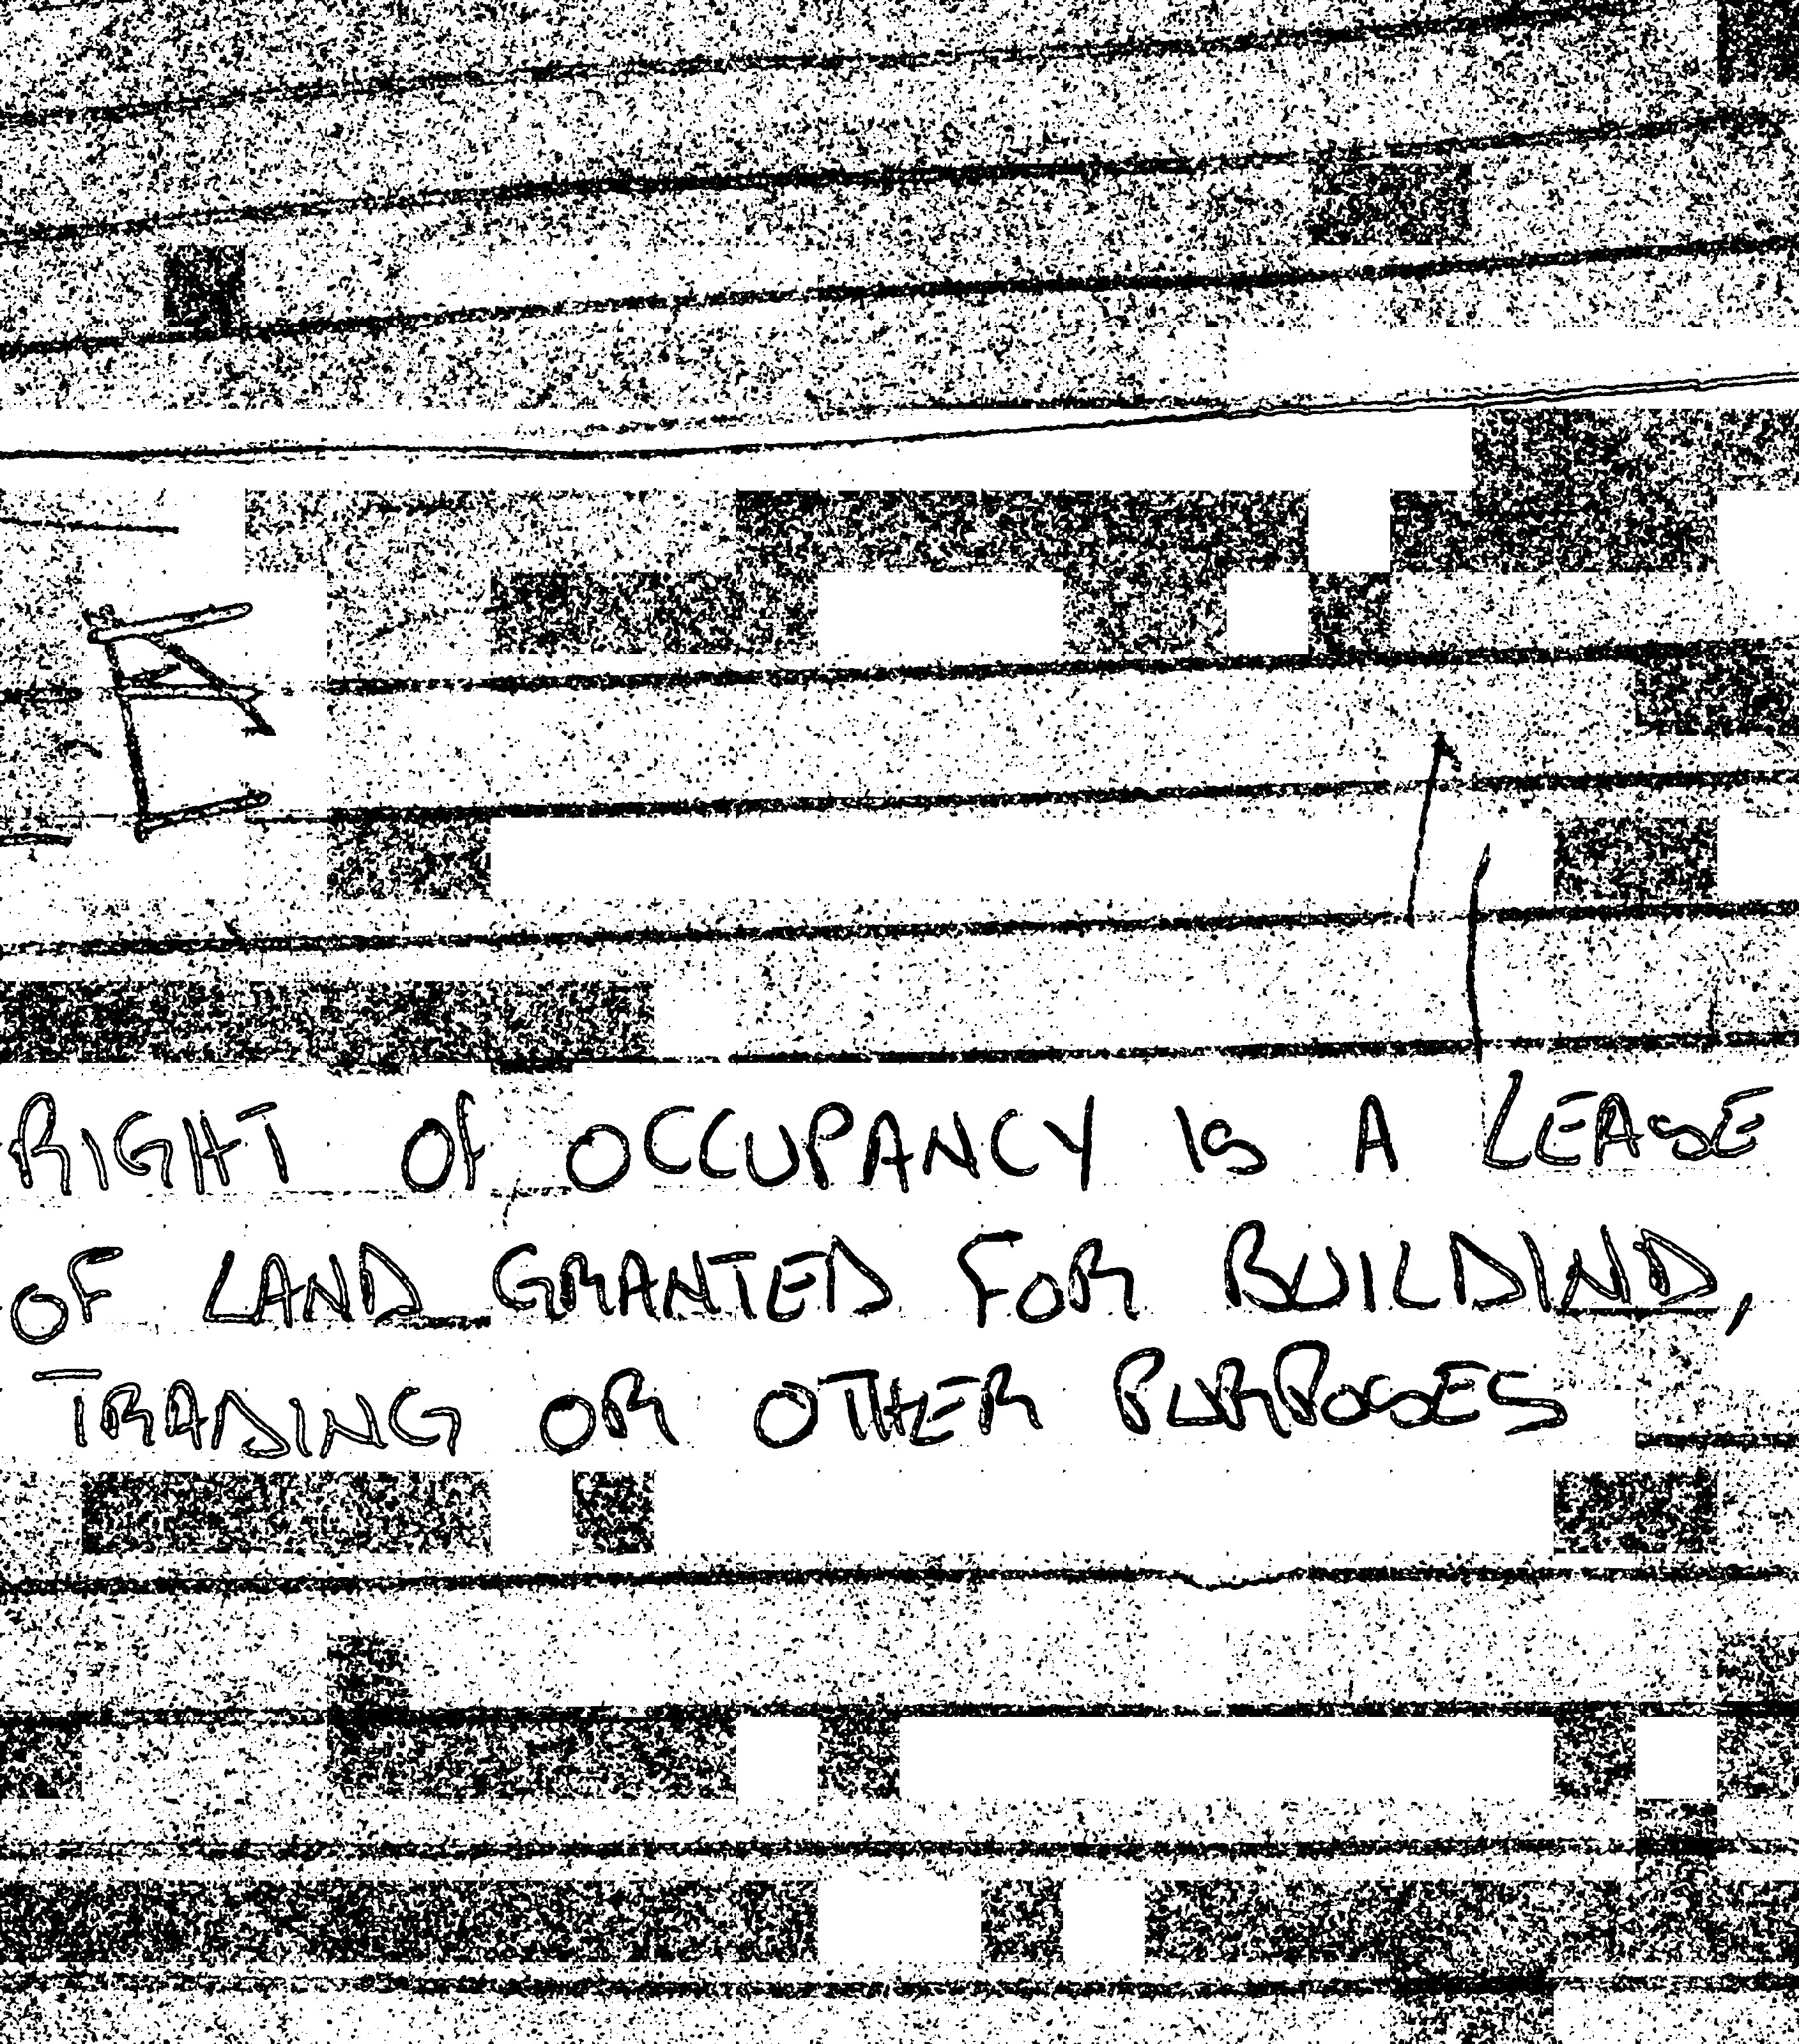 RIGHT OF OCCUPANCY IS A LEASE
OF LAND GRANTED FOR BUILDIND,
TRADING OR OTHER PURPOSES